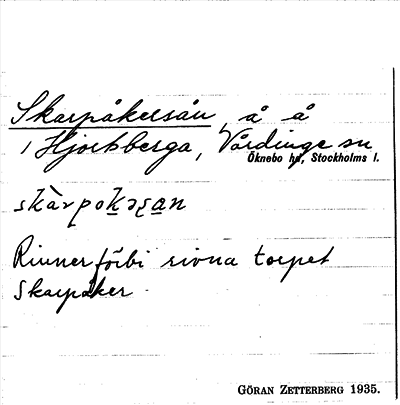 Skarpåkersån, å å
i Hjortsberga, Vårdinge sn
Öknebo hd, Stockholms l.
skàrpokəʂan
Rinner förbi rivna torpet
Skarpåker.
GÖRAN ZETTERBERG 1935.